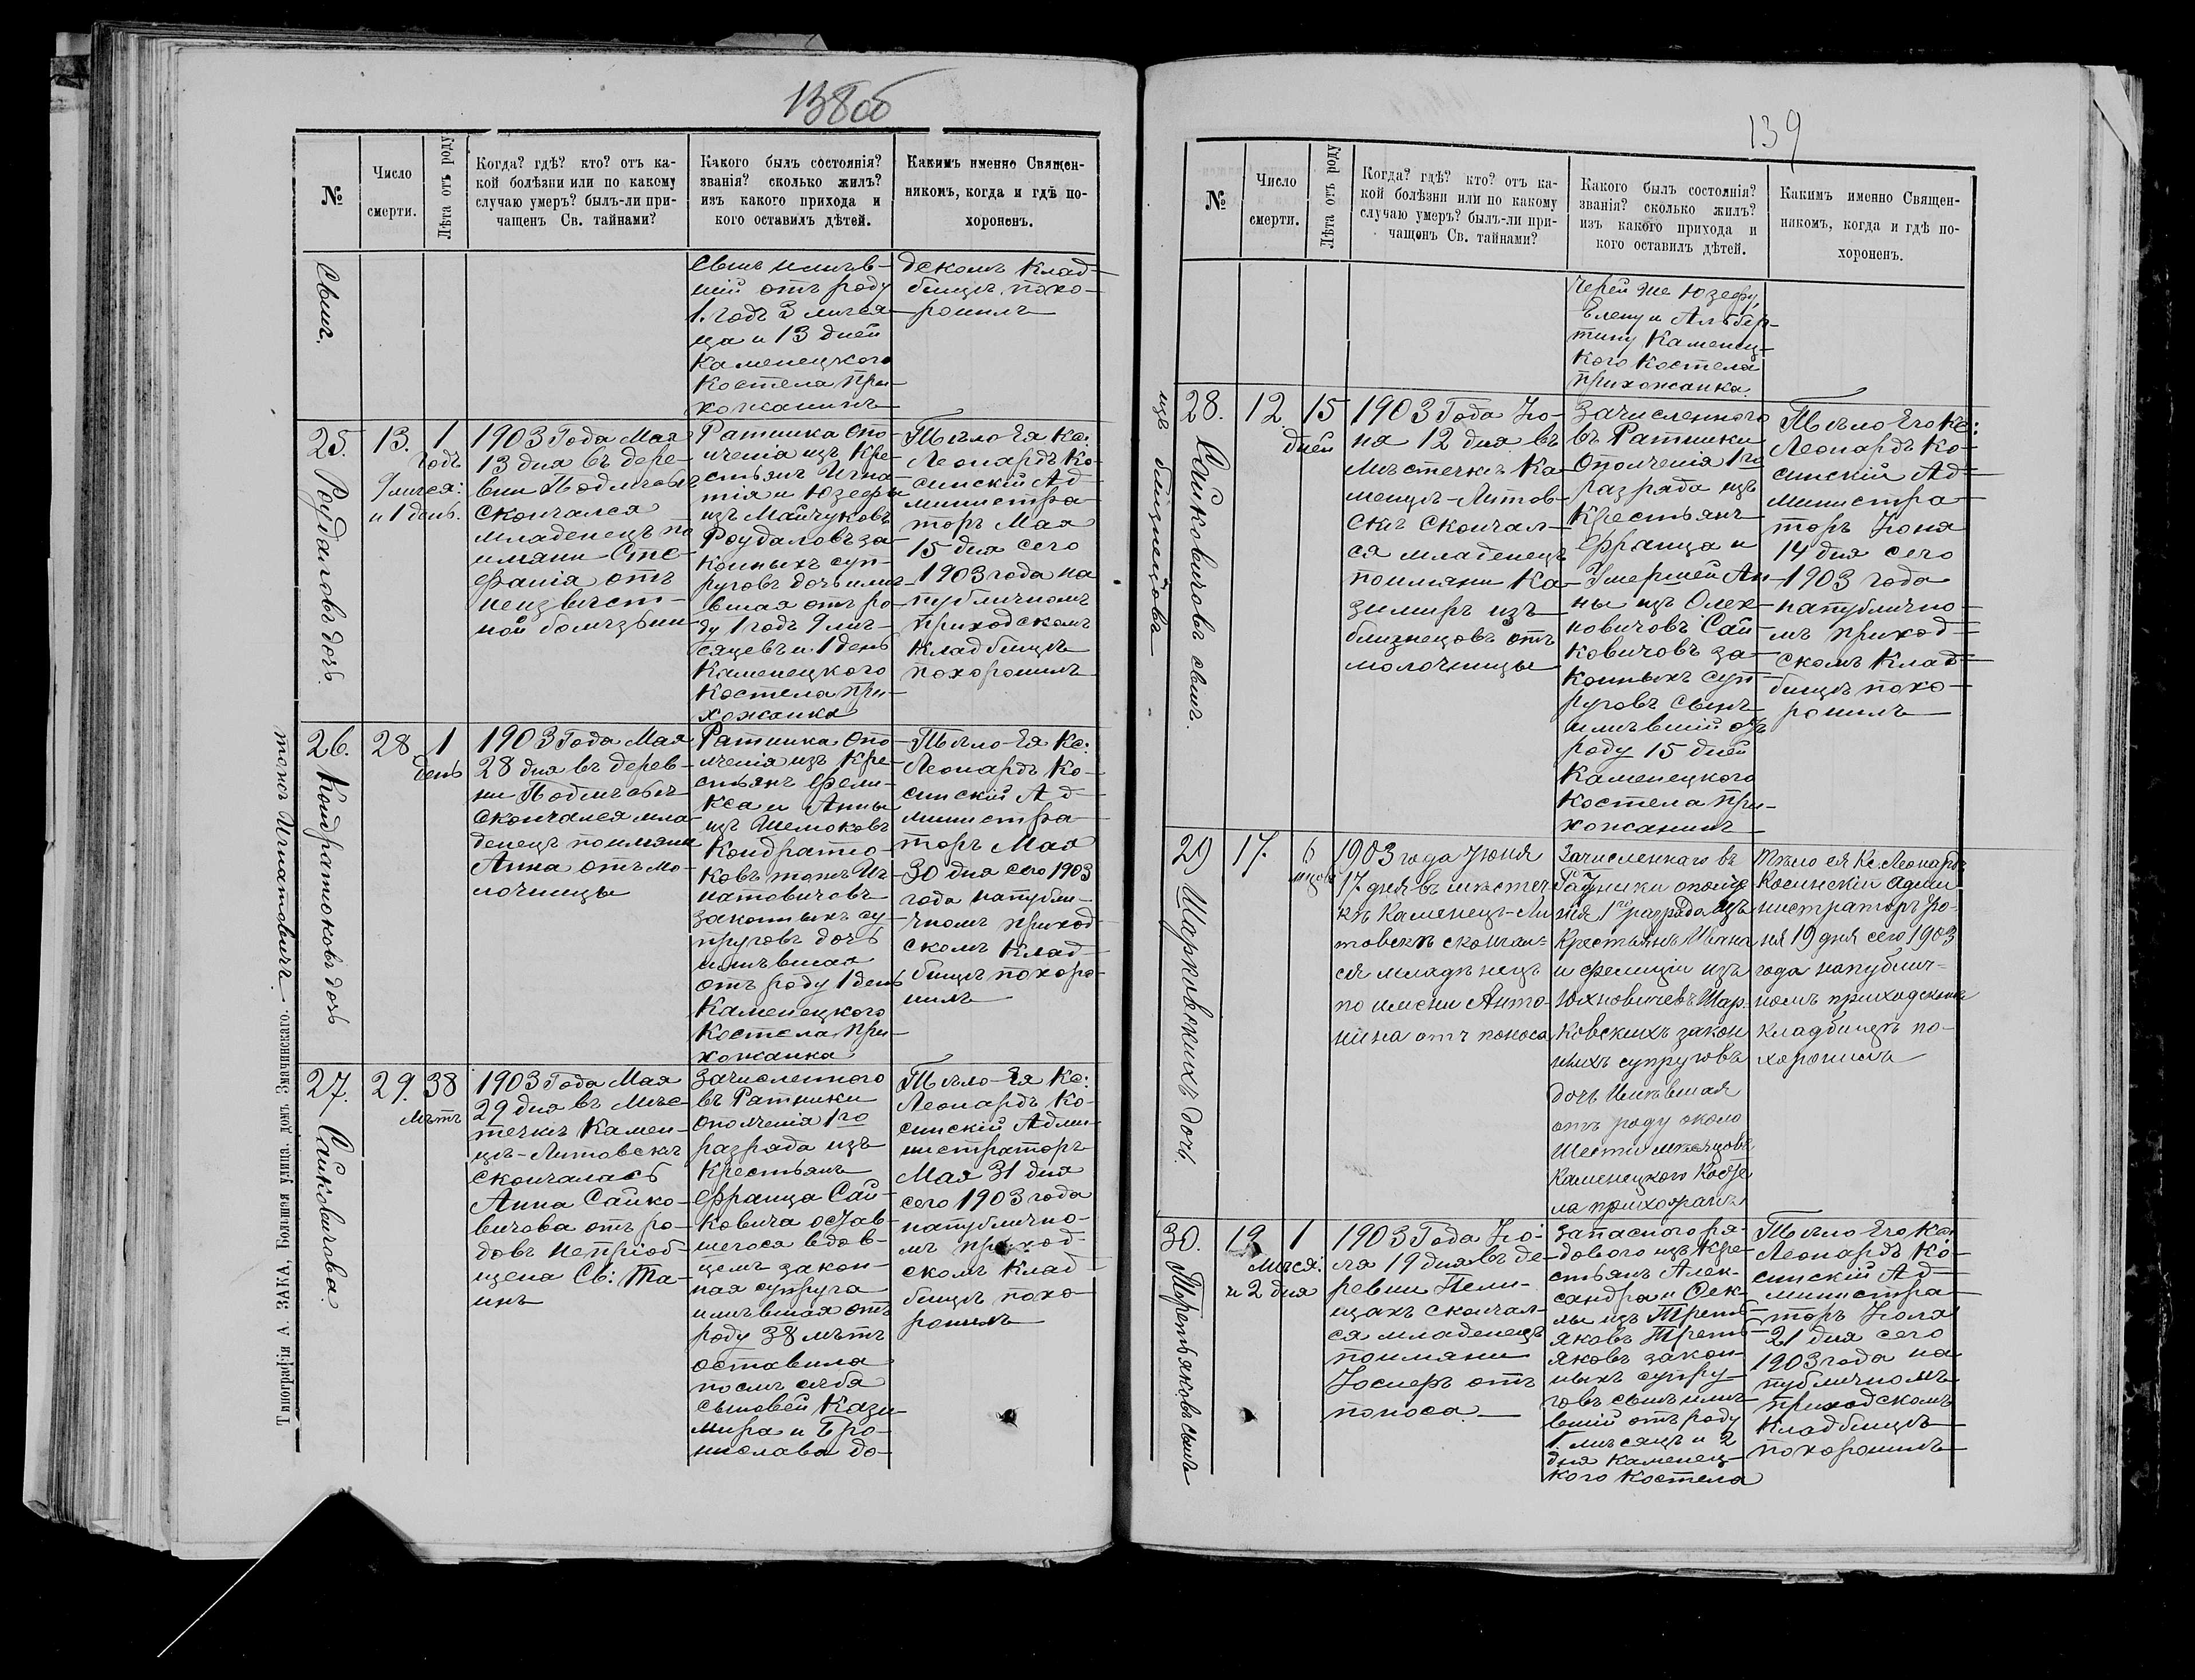 138об
№
Число
смерти.
Лѣта отъ роду
Когда? гдѣ? кто? отъ ка-
кой болѣзни или по какому
случаю умеръ? былъ-ли при-
чащенъ Св. тайнами?
Какого былъ состоянія?
званія? сколько жилъ?
изъ какого прихода и
кого оставилъ дѣтей.
Какимъ именно Священ-
никомъ, когда и гдѣ по-
хороненъ.
Сынъ.
сынъ имѣв-
шій отъ роду
1. годъ 3 мѣся-
ца и 13 дней
Каменецкого
Костела При-
хожанинъ
дскомъ Клад-
бищѣ похо-
ронилъ
25. Роудаловъ дочь.
13.
1
годъ
9 мѣся:
и 1 день.
1903 Года Мая
13 дня въ дере-
вни Подлѣсьѣ
Скончался
младенецъ по
имяни Сте-
фанія отъ
неизвѣст-
ной болѣзьни
Ратника Опо-
лченія изъ Кре-
стьянъ Игна-
тія и Юзефы
изъ Майчуковъ
Роудаловъ за-
конныхъ суп-
руговъ дочь имѣ-
вшая отъ ро-
ду 1 годъ 9 мѣ-
сяцевъ и 1 день
Каменецкого
Костела При-
хожанка
Тѣло Ея Кс:
Леонардъ Ко-
синскій Ад-
министра-
торъ Мая
15 дня сего
1903 года на
публичномъ
приходскомъ
Кладбищѣ
похоронилъ
26. Кондратюковъ дочь
тожъ Игнатовичъ.
28
1
день
1903 Года Мая
28 дня въ дерев-
ни Подлѣсьѣ
Скончался мла-
денецъ поимяни
Анна отъ мо-
лочницы
Ратника Опо-
лченія изъ Кре-
стьянъ Фели-
кса и Анны
изъ Шелюковъ
Кондратю-
ковъ тожъ Иг-
натовичовъ
законныхъ су-
пруговъ дочь
имѣвшая
отъ роду 1 день
Каменецкого
Костела При-
хожанка
Тѣло Ея Кс:
Леонардъ Ко-
синскій Ад-
министра-
торъ Мая
30 дня сего 1903
года напубли-
чномъ приход-
скомъ Клад-
бищѣ похоро-
нилъ
27. Сайковичова.
29.
38
лѣтъ
1903 Года Мая
29 дня въ Мѣс-
течкѣ Камен-
цѣ-Литовскѣ
скончалась
Анна Сайко-
вичова отъ ро-
довъ непріоб-
щена Св: Та-
инъ
Зачисленного
въ Ратники
Ополченія 1го
разряда изъ
Крестьянъ
Франца Сай-
ковича остав-
шегося вдов-
цемъ закон-
ная супруга
имѣвшая отъ
роду 38 лѣтъ
оставила
послѣ себя
сыновей Кази-
мира и Бро-
нислава до-
Тѣло Ея Кс:
Леонардъ Ко-
синскій Адми-
нистраторъ
Мая 31 дня
сего 1903 года
напублично-
мъ приход-
скомъ Клад-
бищѣ похо-
ронилъ
Типографія А. ЗАКА, Большая улица. домъ Значинскаго.
139
№
Число
смерти.
Лѣта отъ роду
Когда? гдѣ? кто? отъ ка-
кой болѣзни или по какому
случаю умеръ? былъ-ли при-
чащонъ Св. тайнами?
Какого былъ состоянія?
званія? сколько жилъ?
изъ какого прихода и
кого оставилъ дѣтей.
Какимъ именно Священ-
никомъ, когда и гдѣ по-
хороненъ.
черей же Юзефу,
Елену и Альбер-
тину Каменец-
кого Костела
Прихожанка.
28. Сайковичовъ сынъ.
изъ близнецовъ
12
15
дней
1903 Года Ію-
ня 12 дня въ
Мѣстечкѣ Ка-
менцѣ-Литов-
скѣ Скончал-
ся младенецъ
поимяни Ка-
зимиръ изъ
близнецовъ отъ
молочницы
Зачисленного
въ Ратники
Ополченія 1го
разряда изъ
Крестьянъ
Франца и
Умершей Ан-
ны изъ Олех-
новичовъ Сай-
ковичовъ за-
конныхъ суп-
руговъ сынъ
имѣвшій отъ
роду 15 дней
Каменецкого
Костела При-
хожанинъ
Тѣло Его Кс:
Леонардъ Ко-
синскій Ад-
министра-
торъ Іюня
14 дня сего
1903 года
напублично-
мъ приход-
скомъ Клад-
бищѣ похо-
ронилъ
29 Шарковскихъ дочь
17.
6
мцовъ
1903 года Іюня
17 дня въ мѣстеч-
кѣ Каменецъ-Ли
товскѣ скончал-
ся младѣнецъ
по имени Анто-
нина отъ поноса
Зачисленнаго въ
Ратники ополче
нія 1го разряда изъ
Крестьянъ Ивана
и Фелиціи изъ
Юхновичевъ Шар-
ковскихъ закон
ныхъ супруговъ
дочь имѣвшая
отъ роду около
шести мѣсяцовъ
Каменецкого Косте
ла прихожанка
Тѣло ея Кс. Леонардъ
Косинскій Адми
нистраторъ Ію-
ня 19 дня сего 1903
года напублич-
номъ приходскомъ
кладбищѣ по-
хоронилъ
30. Третьяковъ сынъ
19
1
мѣся:
и 2 дня
1903 Года Ію-
ля 19 дня въ де-
ревни Пели-
щахъ скончал-
ся младенецъ
поимяни
Іосифъ отъ
поноса.
Запасного ря-
дового изъ Кре-
стьянъ Алек-
сандра и Фек-
лы изъ Треть-
яковъ Треть-
яковъ закон-
ныхъ супру-
говъ сынъ имѣ-
вшій отъ роду
1. мѣсяцъ и 2
дня Каменец-
кого Костела
Тѣло Его Кс:
Леонардъ Ко-
синскій Ад-
министра-
торъ Іюля
21 дня сего
1903 года на
публичномъ
приходскомъ
Кладбищѣ
похоронилъ